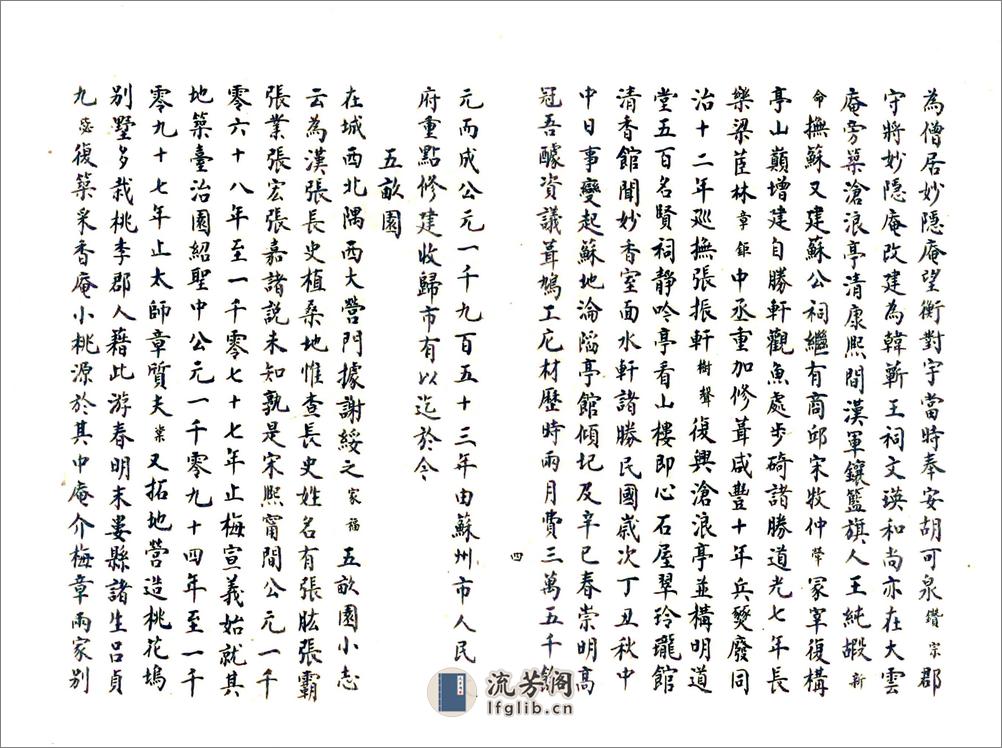 為僧居妙隱庵望衡對宇當時奉安胡可泉纘宗郡
守將妙隱庵改建為韓蘄王祠文瑛和尚亦在大雲
庵旁築滄浪亭清康熙間漢軍鑲籃旗人王純嘏新
命撫蘇又建蘇公祠繼有商邱宋牧仲犖冢宰復構
亭山巔增建自勝軒觀魚處步碕諸勝道光七年長
樂梁茝林章鉅中丞重加修葺咸豐十年兵燹廢同
治十二年廵撫張振軒樹聲復興滄浪亭並構明道
堂五百名賢祠靜吟亭看山樓即心石屋翠玲瓏館
清香館聞妙香室面水軒諸勝民國歲次丁丑秋中
中日事變起蘇地淪滔亭館傾圮及辛巳春崇明高
冠吾醵資議葺鳩工庀材歷時兩月費三萬五千餘
四
元而成公元一千九百五十三年由蘇州市人民
府重點修建收歸市有以迄於今
五畝園
在城西北隅西大營門據謝綏之家福五畝園小志
云為漢張長史植桑地惟查長史姓名有張肱張霸
張業張宏張嘉諸説未知孰是宋熙甯間公元一千
零六十八年至一千零七十七年止梅宣義始就其
地築臺治園紹聖中公元一千零九十四年至一千
零九十七年止太師章質夫楶又拓地營造桃花塢
別墅多栽桃李郡人藉此游春明末婁縣諸生呂貞
九毖復築采香庵小桃源於其中庵介梅章兩家別
流芳阁
lfglib.cn